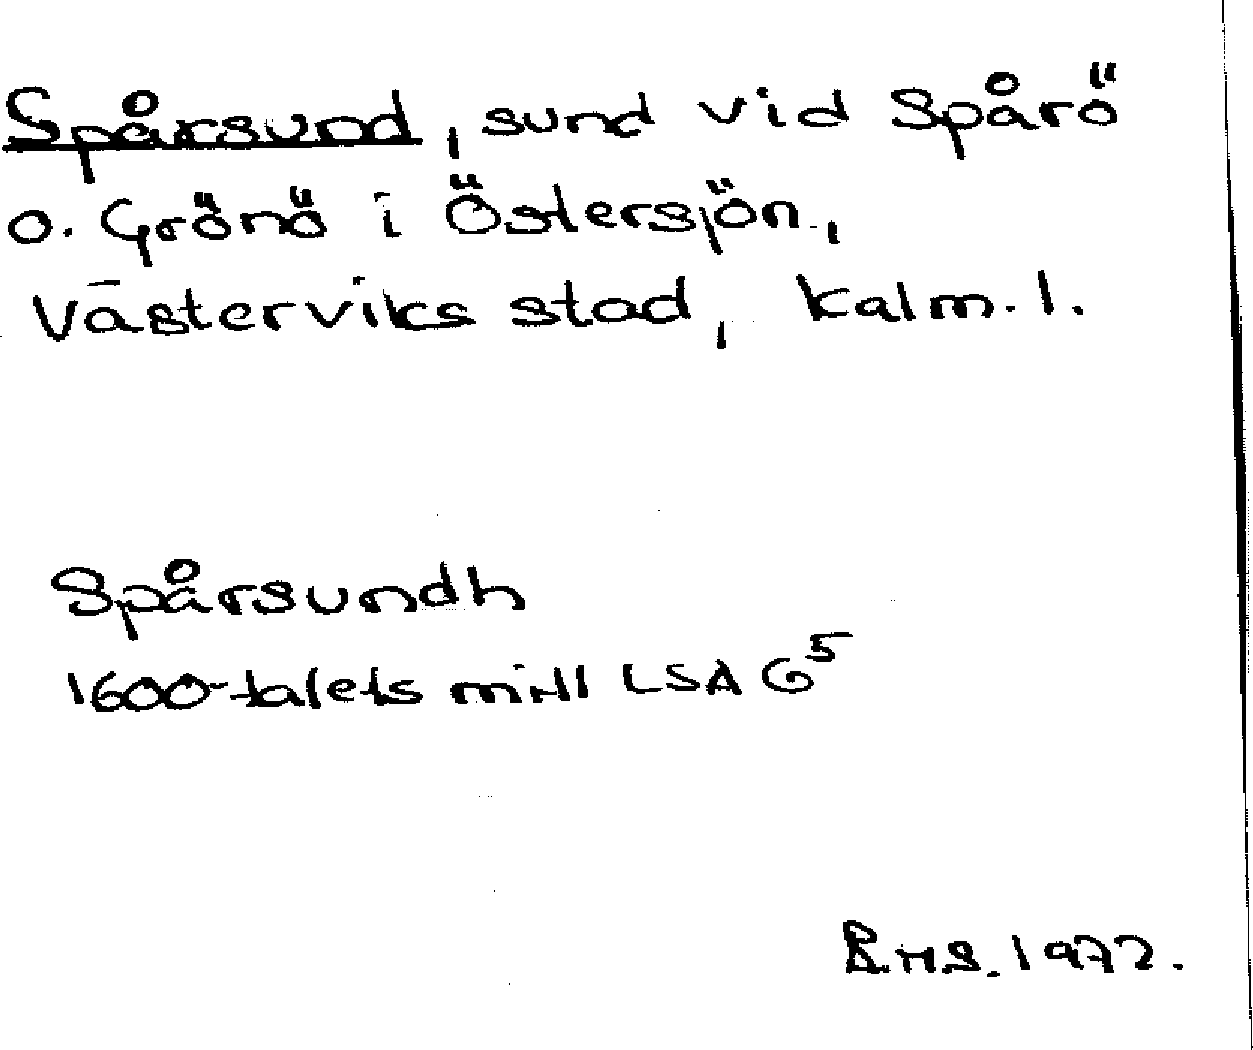 Spårsund, sund vid Spårö
o. Grönö i Östersjön,
Västerviks stad, Kalm. l.
Spårsundh
1600-talets mitt LSA G5
R.H.S. 1972.